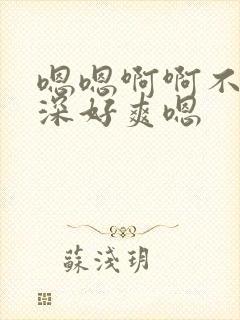 嗯嗯啊啊不
深好爽嗯
蘇淺玥